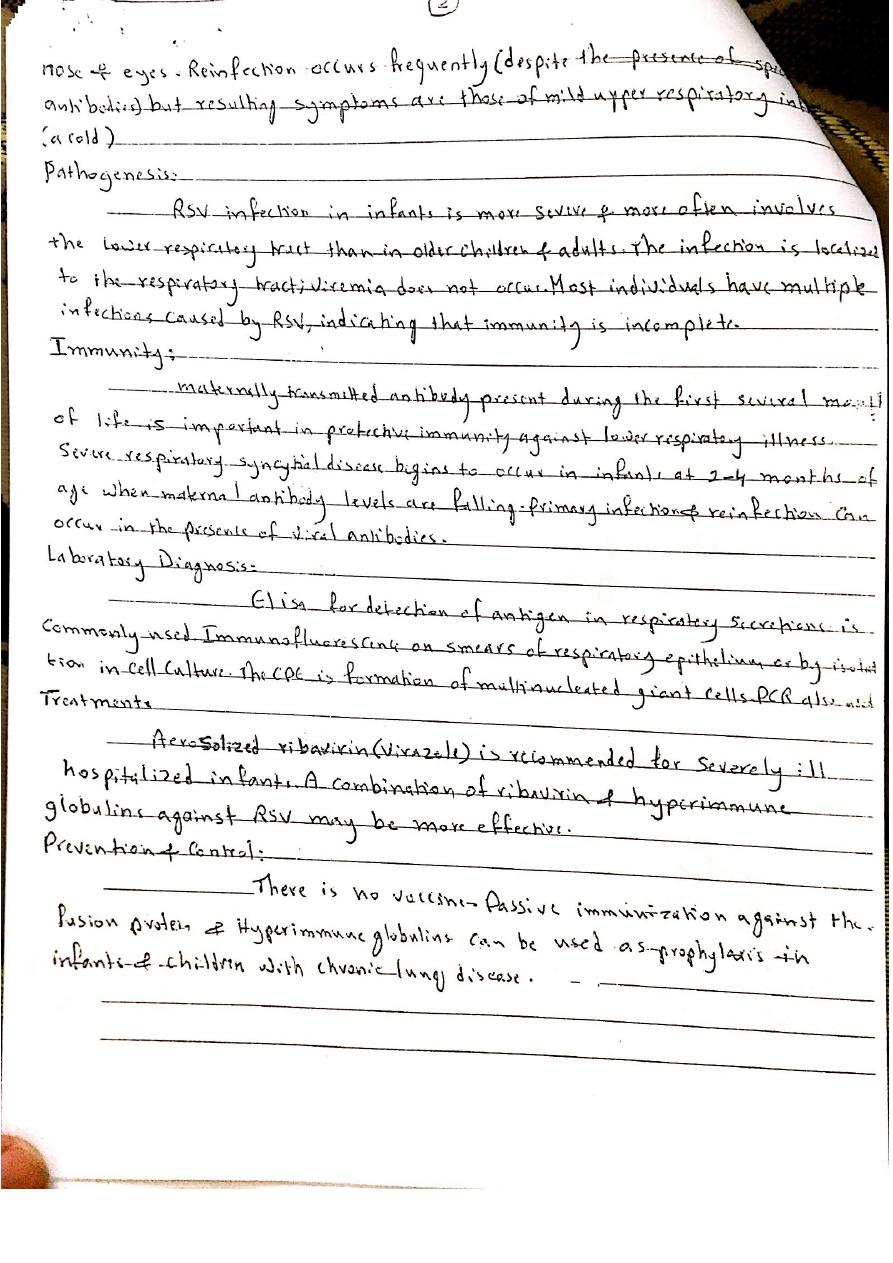 2
nose & eyes. Reinfection occurs frequently (despite the presence of
antibodies) but resulting symptoms are those of mild upper respiratory
(a cold)
Pathogenesis:
RSV infection in infants is more severe & more often involves
the lower respiratory tract than in older children & adults. The infection is localized
to the respiratory tract; viremia does not occur. Most individuals have multiple
infections caused by RSV, indicating that immunity is incomplete.
Immunity:
maternally transmitted antibody present during the first several
of life is important in protective immunity against lower respiratory illness.
Severe respiratory syncytial disease begins to occur in infants at 2-4 months of
age when maternal antibody levels are falling. primary infection & reinfection can
occur in the presens of viral antibodies.
Laboratory Diagnosis:
Elisa for detection of antigen in respiratory secretions is
commonly used Immunofluorescence on smears of respiratory epithelium or by isolat
tion in cell culture. The CPE is formation of multinucleated giant cells. PCR also used
Treatment:
Aerosolized ribavirin (Virazole) is recommended for severely ill
hospitalized infants. A combination of ribavirin & hyperimmune
globulins against RSV may be more effective.
Prevention & Control:
There is no vaccine. Passive immunization against the
fusion protein & Hyperimmune globulins can be used as prophylaxis in
infants & children with chronic lung disease.